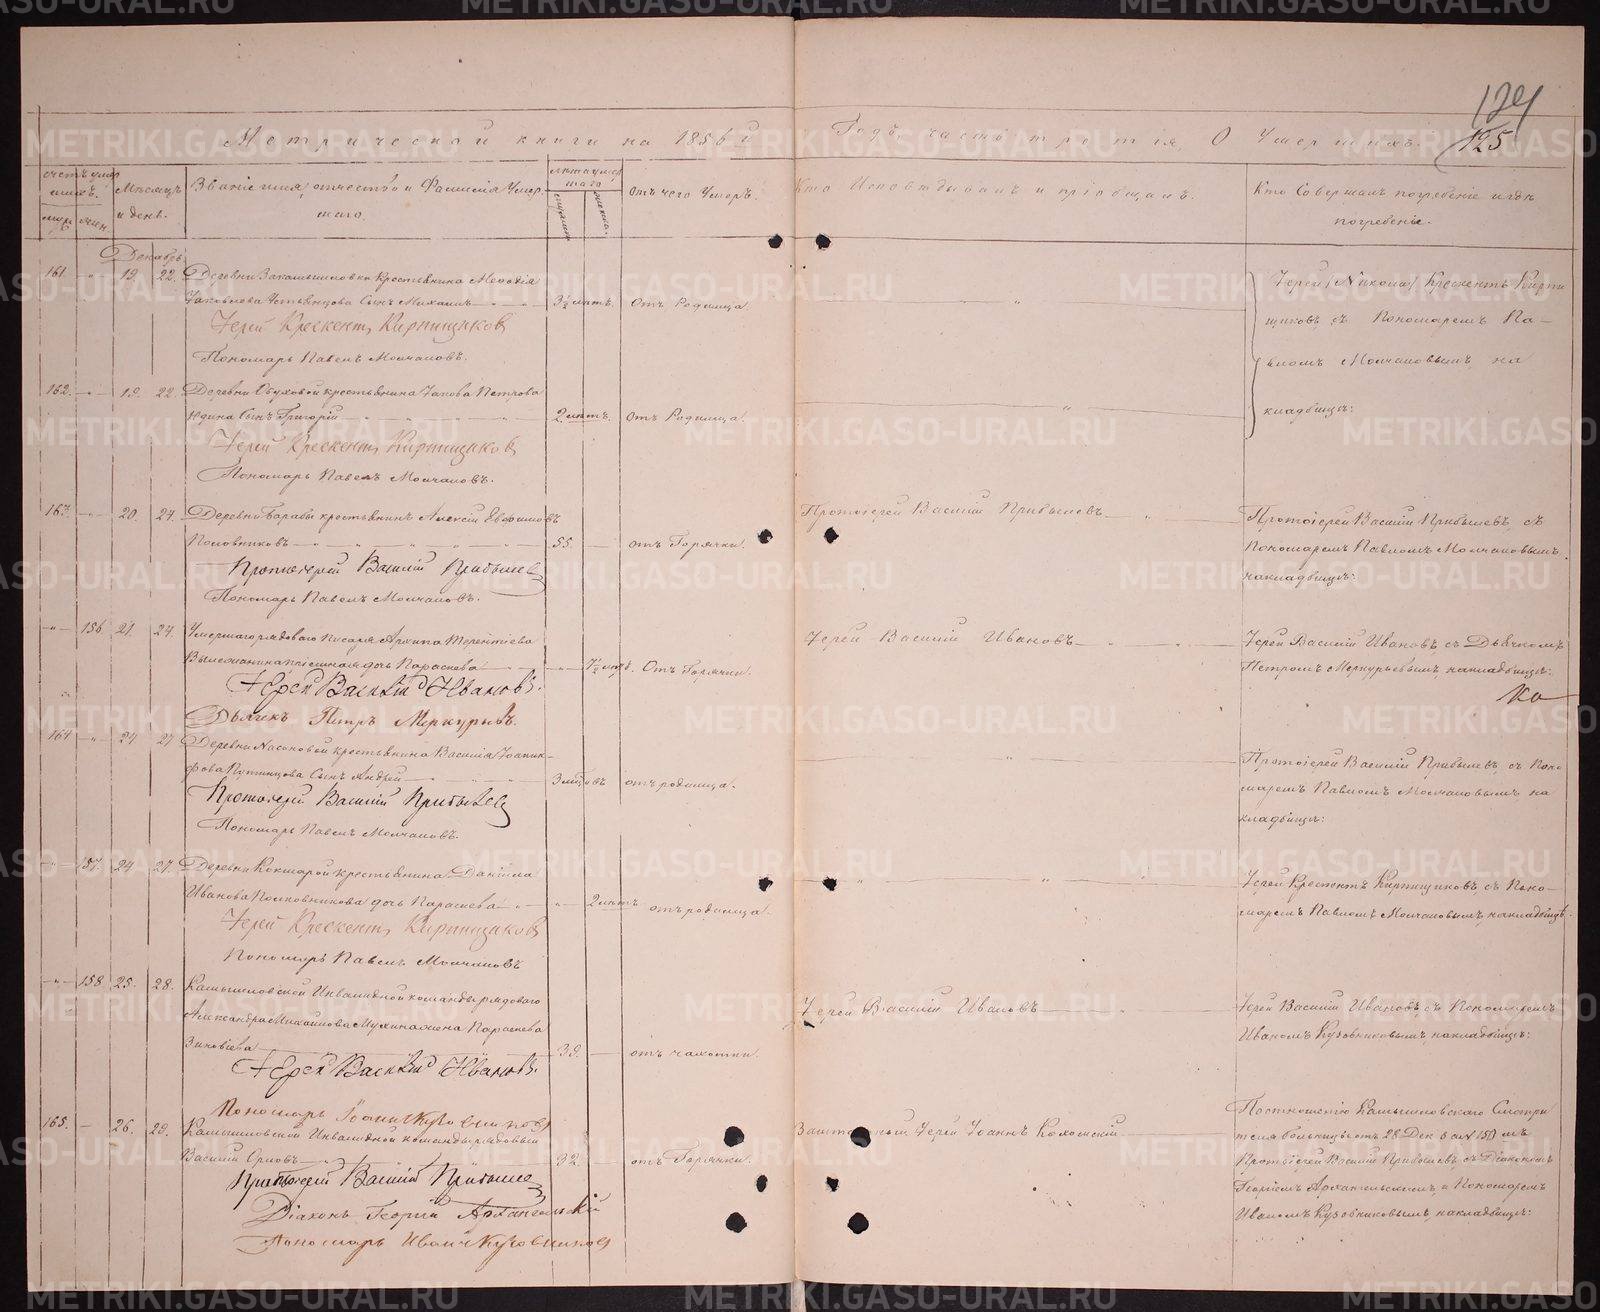 124
125
Метрической книги на 1856й Годъ часть третія, О Умершихъ.
счетъ умершихъ.
муж. жен.
Мѣсяцъ и день.
Званіе имя, отчество и Фамилія Умершаго.
лѣта умершаго
мужеска женска.
Отъ чего Умеръ.
Кто Исповѣдывалъ и пріобщалъ.
Кто Совершалъ погребеніе и гдѣ погребены.
Декабрь
161. " 19. 22. Деревни Закамышловки крестьянина
Яковлева Устьянцова Сынъ Михаилъ 3½ лѣтъ. Отъ Родимца.
Іерей Крескентъ Кирпищиковъ
Пономарь Павелъ Молчановъ.
Іерей (Никола) Крескентъ Кирпи
щиковъ съ Пономаремъ Па-
вломъ Молчановымъ на
кладбищѣ:
162. " 19. 22. Деревни Обуховой крестьянина Іакова Петрова
Юдина Сынъ Григорій 2 лѣтъ. Отъ Родимца.
Іерей Крескентъ Кирпищиковъ
Пономарь Павелъ Молчановъ.
163. " 20. 24. Деревни Барабы крестьянинъ Алексій Евфимовъ
Половниковъ 55. отъ Горячки.
Протоіерей Василій Прибылев
Пономарь Павелъ Молчановъ.
Протоіерей Василій Прибылевъ
Протоіерей Василій Прибылевъ, съ
Пономаремъ Павломъ Молчановымъ
на кладбищѣ:
" 156. 21. 24. Умершаго рядоваго Архипа Терентіева
дочь Параскева 7½ лѣтъ. Отъ Горячки.
Іерей Василій Ивановъ.
Дьячекъ Петръ Меркурьевъ.
Іерей Василій Ивановъ
Іерей Василій Ивановъ съ Дьячкомъ
Петромъ Меркурьевымъ, на кладбищѣ:
164 " 24 27 Деревни Насоновой крестьянина Василія Іоаник-
фова Сынъ Андрей 3 отъ родимца.
Протоіерей Василій Прибылев
Пономарь Павелъ Молчановъ.
Протоіерей Василій Прибылевъ, съ Поно-
маремъ Павломъ Молчановымъ на
кладбищѣ:
" 157. 24 27. Деревни Кокшарой крестьянина Даніила
Иванова Половникова дочь Параскева 2 лѣтъ отъ родимца.
Іерей Крескентъ Кирпищиков
Пономарь Павелъ Молчановъ
Іерей Крескентъ Кирпищиковъ съ Поно-
маремъ Павломъ Молчановымъ, на кладбищѣ.
" 158 25. 28. Камышловской Инвалидной команды рядоваго
Александра Михайлова Мухина жена Параскева
Зиновіева 39. отъ чахотки.
Іерей Василій Ивановъ.
Пономарь Іоанн Кузовников
Іерей Василій Ивановъ
Іерей Василій Ивановъ съ Пономаремъ
Иваномъ Кузовниковымъ на кладбищѣ:
165. 26. 29. Камышловской Инвалидной команды рядовый
Василій Орловъ 32. отъ Горячки.
Протоіерей Василій Прибылев
Діаконъ Георгій Архангельскій
Пономарь Иванъ Кузовников
Заштатный Іерей Іоаннъ
По отношенію Камышловскаго Смотри
теля больницы отъ 28 Дек за № 150 мъ
Протоіерей Василій Прибылевъ, съ Діакономъ
Георгіемъ Архангельскимъ, и Пономаремъ
Иваномъ Кузовниковымъ, на кладбищѣ:
METRIKI.GASO-URAL.RU